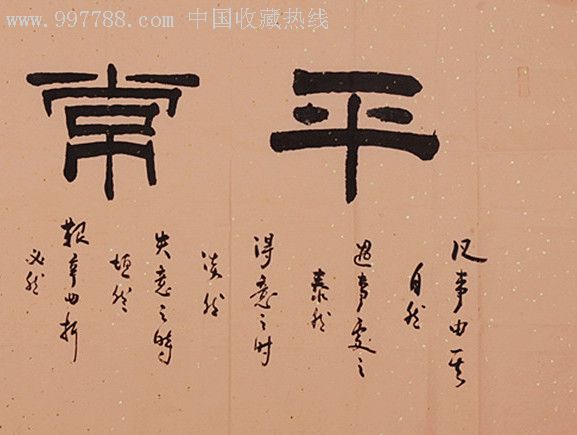 www.997788.com 中国收藏热线
平常
凡事由其
自然
遇事处之
泰然
得意之时
淡然
失意之時
坦然
艰辛曲折
必然